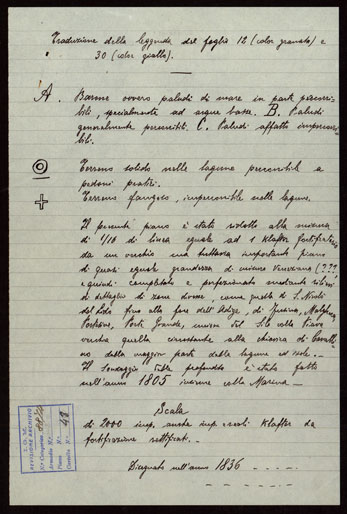 Traduzione della leggenda del foglio 12 (color granato) e
30 (color giallo).
A. Barene ovvero paludi di mare in parte percorri-
bili, specialmente ad acque basse. B. Paludi
generalmente percorribili. C. Paludi affatto impercorri-
bili.
Terreno solido nelle lagune percorribile a
pedoni pratici.
Terreno fangoso, impercorribile nelle lagune.
Il presente piano è stato ridotto alla misura
di 1/10 di linea eguale ad 1 Klafter fortificatorio
da un vecchio ma tuttavia importante piano
di quasi eguale grandezza di misure Veneziane (???)
e quindi completato e perfezionato mediante rilievi
di dettaglio di zone diverse, come quella di S. Nicolò
del Lido fino alla foce dell'Adige, di Fusina, Malghera
Portesine, Porto Grande,
vecchia quella circostante alla chiusa di Cavalli-
no della maggior parte delle lagune ed isole.
Il Sondaggio della profondità è stato fatto
nell'anno 1805 insieme colla Marina.
Scala
di 2000 imp. Klafter da
fortificazione rettificati.
Disegnato nell'anno 1836
I. G. M.
REVISIONE ARCHIVIO
Armadio N.
Cartella N. 48